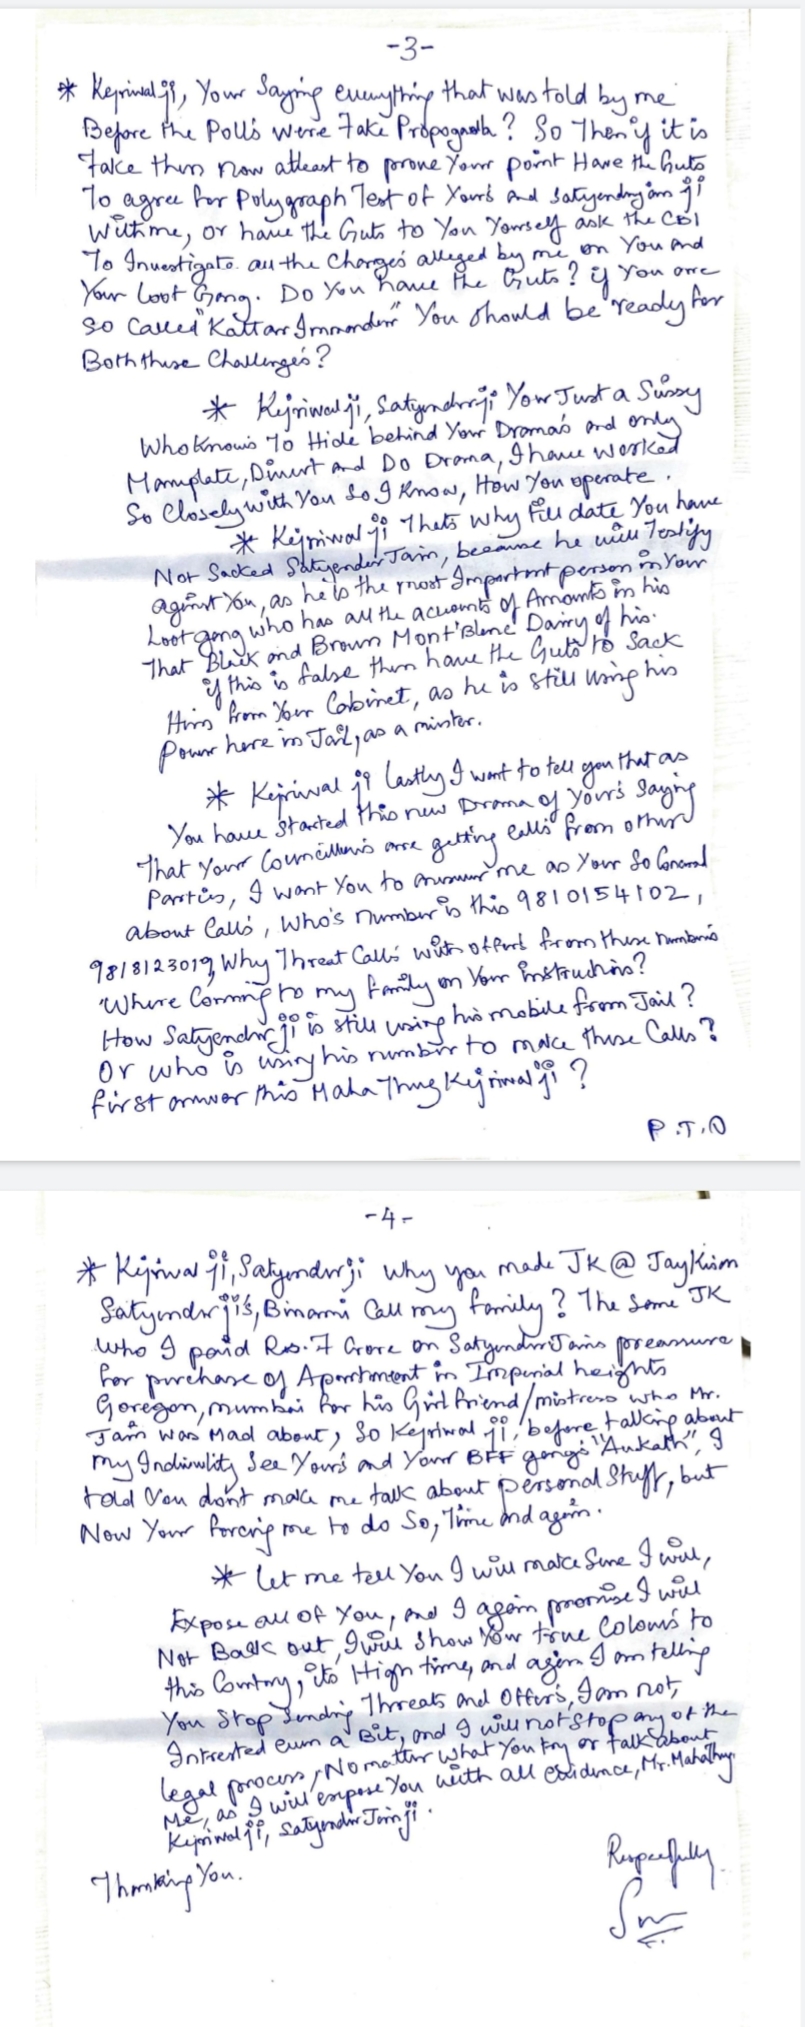 -3-
* Kejriwal ji, Your Saying everything that was told by me
Before the Polls were Fake Propoganda? So Then if it is
Fake then now atleast to prove Your point Have the Guts
To agree for Polygraph Test of Yours and Satyendrajain ji
With me, or have the Guts to You Yourself ask the CBI
To Investigate all the Charges alleged by me on You and
Your Loot Gang. Do You have the Guts? if You are
So Called "Kattar Immandar" You should be ready for
Both these Challenges?
* Kejriwal ji, Satyendrji Your Just a Sissy
Who Knows To Hide behind Your Dramas and only
Divert and Do Drama, I have worked
So Closely with You So I Know, How You operate.
* Kejriwal ji Thats why till date You have
Not Sacked Satyender Jain, because he will Testify
against You, as he is the most Important person in Your
Loot gang who has all the accounts of Amounts in his
That Black and Brown Mont'Blanc Dairy of his.
if this is false then have the Guts to Sack
Him from Your Cabinet, as he is still using his
Power here in Jail, as a minster.
* Kejriwal ji lastly I want to tell you that as
You have Started this new Drama of Yours Saying
That Your Councillors are getting calls from other
Parties, I want You to answer me as Your So
about Calls, Who's number is this 9810154102,
9818123019, Why Threat Calls with offers from these numbers
Where Comming to my family on Your instructions?
How Satyendrji is still using his mobile from Jail?
Or who is using his number to make these Calls?
first answer this Maha Thug Kejriwal ji?
P.T.O
-4-
* Kejriwal ji, Satyendrji why you made JK @ Jaykisan
Satyendrji's, Binami Call my family? The Same JK
Who I paid Rs. 7 Crore on Satyendr Jains preassure
for purchase of Apartment in Imperial heights
Goregon, mumbai for his Girl friend/mistress who Mr.
Jain was Mad about, So Kejriwal ji, before talking about
my See Yours and Your BFF gangs "Aukath", I
told You dont make me talk about personal Stuff, but
Now Your forcing me to do So, Time and again.
* Let me tell You I will make Sure I will,
Expose all of You, and I again promise I will
Not Back out, I will Show Your true Colours to
this Country, its High time, and again I am telling
You Stop Sending Threats and Offers, I am not,
Intrested even a Bit, and I will not Stop any of the
legal process, No matter what You try or talk about
Me, as I will expose You with all evidence, Mr. Mahathug
Kejriwal ji, Satyendr Jain ji.
Thanking You.
Respectfully